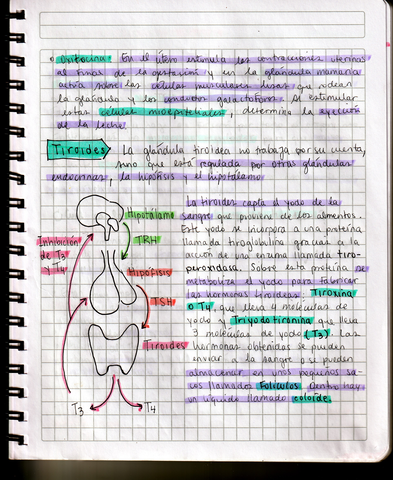 o Oxitocina. En el útero estimula las contracciones uterinas
al final de la gestación y en la glándula mamaria
actúa sobre las células musculares lisas que rodean
la glándula y los conductos galactóforos. Al estimular
estas células mioepiteliales, determina la eyección
de la leche
Tiroides La glándula tiroidea no trabaja por su cuenta,
sino que está regulada por otras glándulas
endocrinas, la hipófisis y el hipotálamo.
Hipotálamo
TRH
Inhibición
de T3
y T4
Hipófisis
TSH
Tiroides
T3 T4
La tiroides capta el yodo de la
sangre que proviene de los alimentos.
Este yodo se incorpora a una proteína
llamada tiroglobulina gracias a la
acción de una enzima llamada tiro-
peroxidasa. Sobre esta proteína se
metaboliza el yodo para fabricar
las hormonas tiroideas: Tiroxina
o T4, que lleva 4 moléculas de
yodo y Triyodotironina que lleva
3 moléculas de yodo (T3). Las
hormonas obtenidas se pueden
enviar a la sangre o se pueden
almacenar en unos pequeños sa-
cos llamados Folículos. Dentro hay
un líquido llamado coloide.